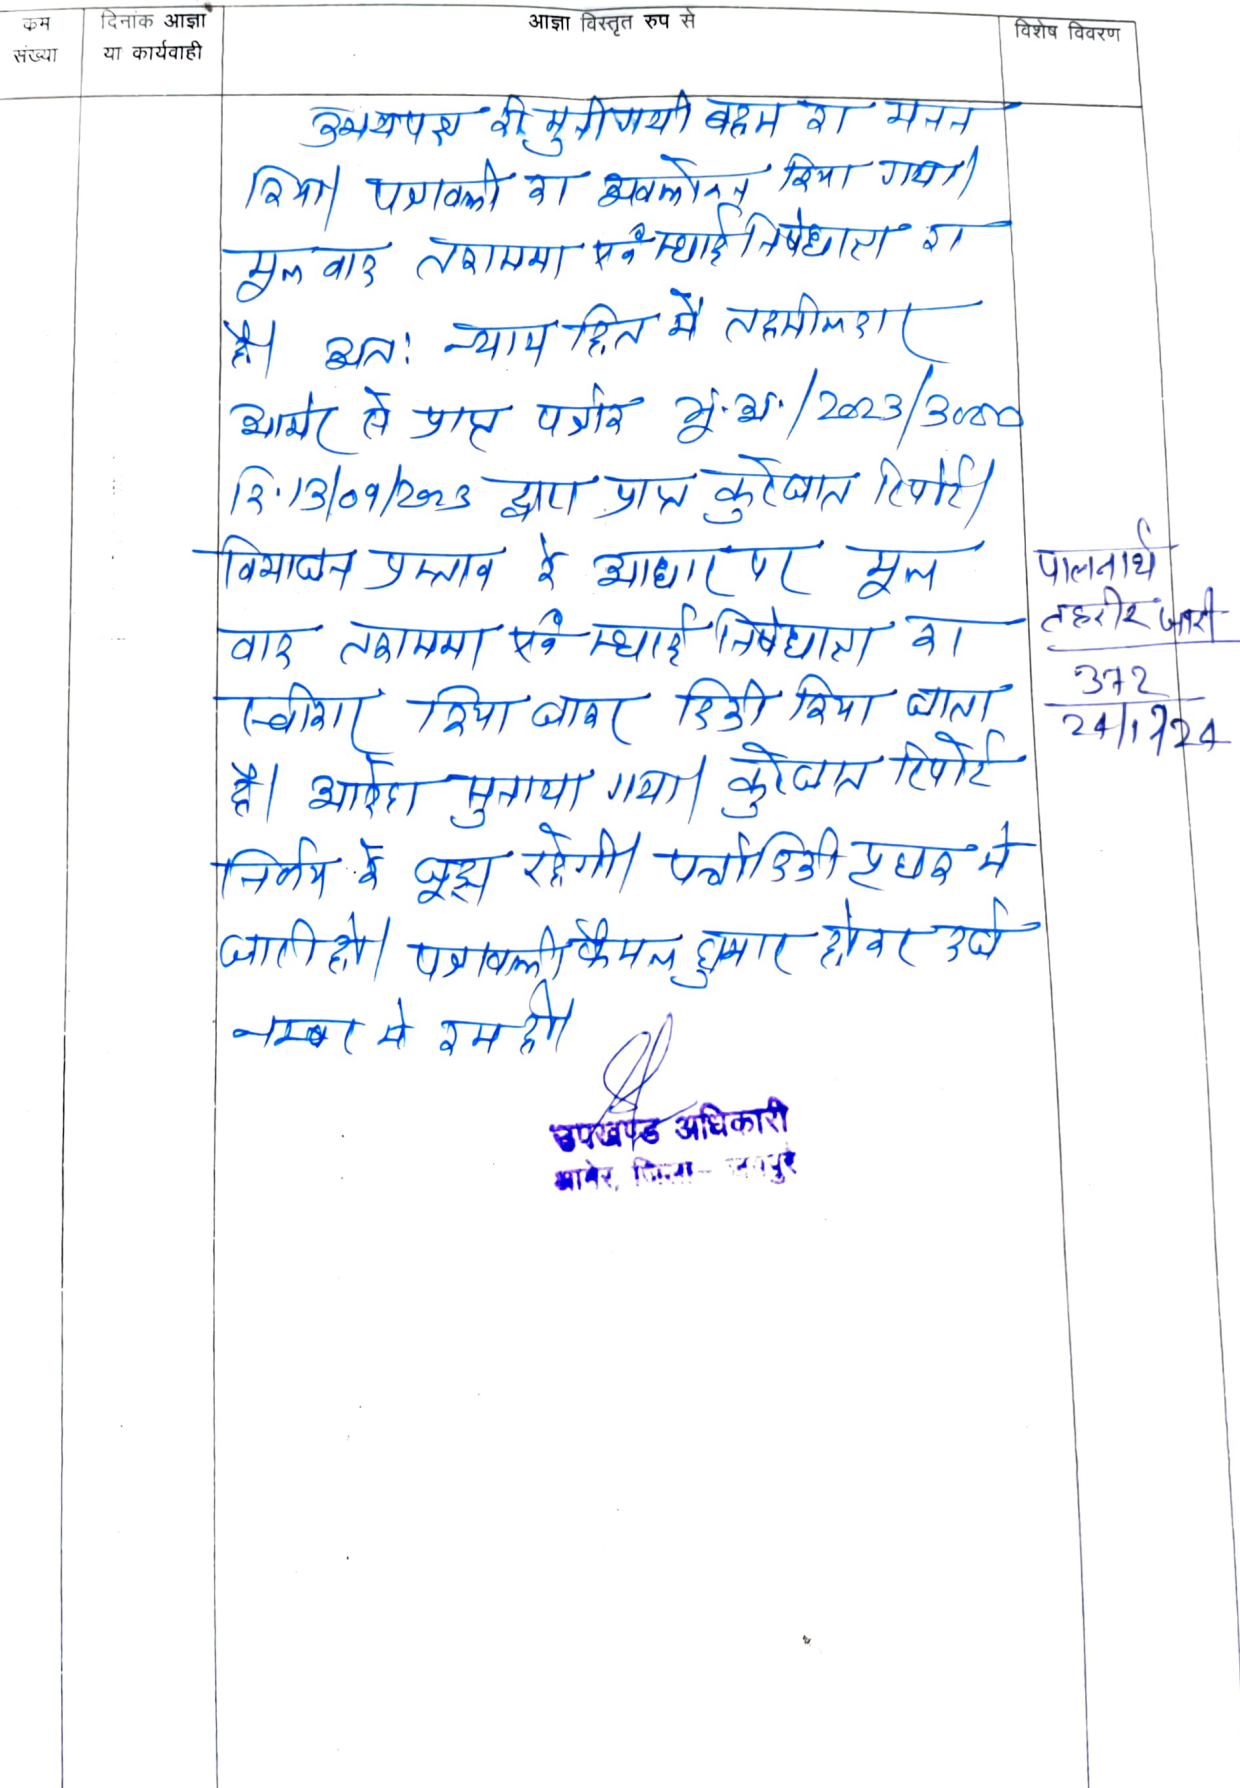 कम संख्या
दिनांक आज्ञा या कार्यवाही
आज्ञा विस्तृत रुप से
विशेष विवरण
उभयपक्ष की सुनी गयी बहस का मनन
किया। पत्रावली का अवलोकन किया गया।
मूल वाद तकासमा एवं स्थाई निषेधाज्ञा का
है। अतः न्याय हित में तहसीलदार
आमेर से प्राप्त पत्रांक भू.अ./2023/3000
दि.13/09/2023 द्वारा प्राप्त कुरेजात रिपोर्ट।
विभाजन प्रस्ताव के आधार पर मूल
वाद तकासमा एवं स्थाई निषेधाज्ञा का
स्वीकार किया जाकर डिक्री किया जाता
है। आदेश सुनाया गया। कुरेजात रिपोर्ट
निर्णय के जूझ रहेगी। पर्चा डिक्री पृथक से
जारी हो। पत्रावली फैसल शुमार होकर दर्ज
नम्बर से कम हो।
पालनार्थ
तहरीर जारी
372
उपखण्ड अधिकारी
आमेर, जिला- जयपुर